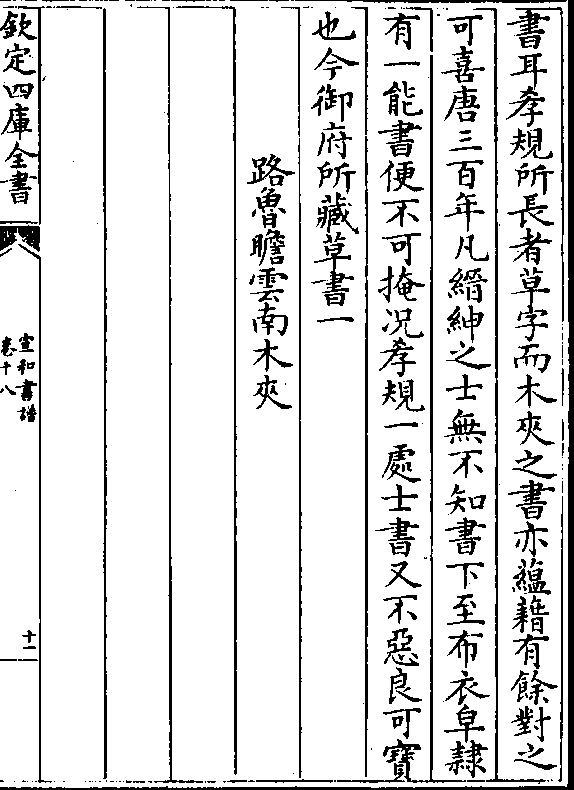 書耳孝規所長者草字而木夾之書亦蘊藉有餘對之
可喜唐三百年凡縉紳之士無不知書下至布衣皁隸
有一能書便不可掩况孝規一處士書又不惡良可寳
也今御府所藏草書一
路魯瞻雲南木夾
欽定四庫全書
宣和書譜
卷十八
十一